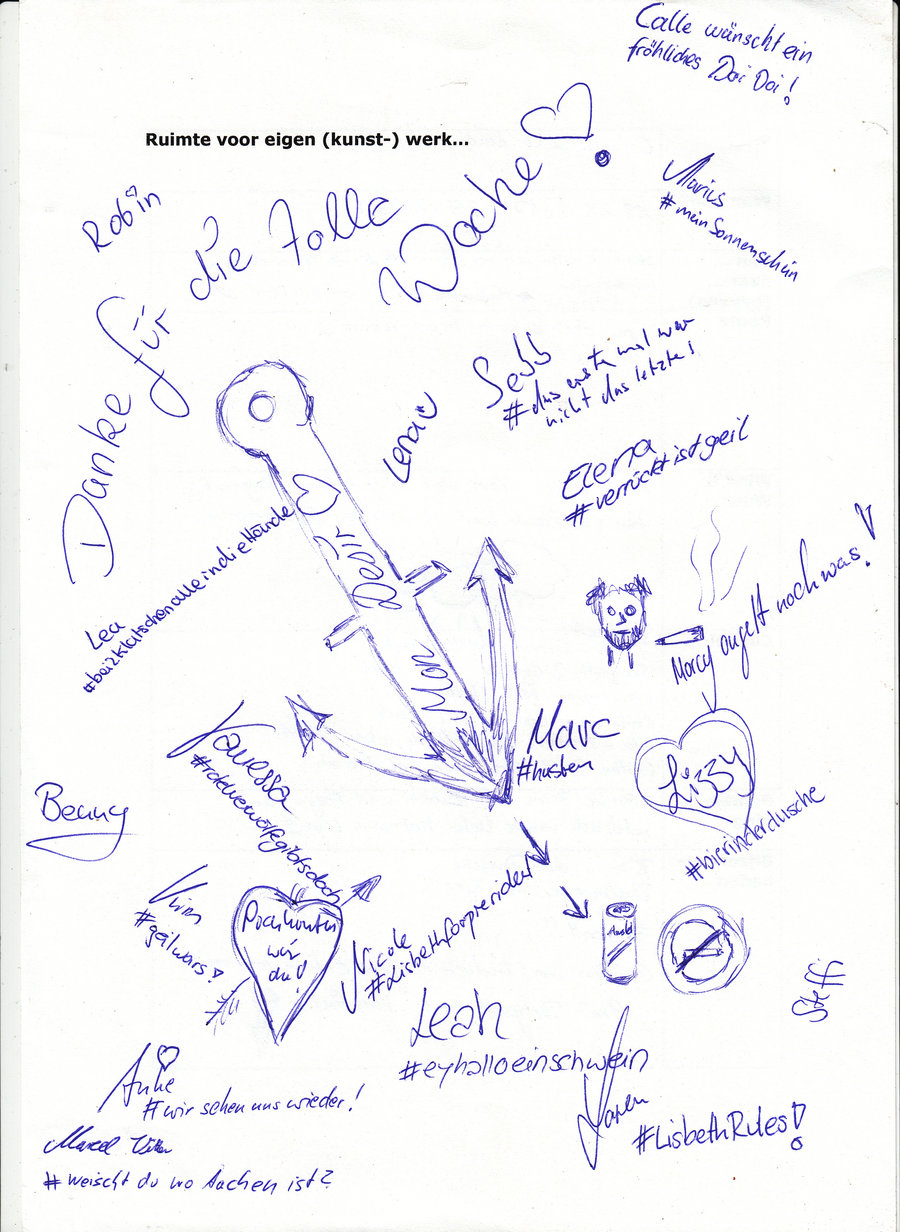 Calle wünscht ein
fröhliches Doi Doi!
Ruimte voor eigen (kunst-) werk...
Robin
Danke für die tolle
Woche
Marius
#meinSonnenschein
Sebb
#das erste mal war
nicht das letzte!
Lena
Elena
#verrücktistgeil
Lea
#bei2klatschenalleindieHände
Marcy angelt noch was!
Marc
#husten
Lizzy
#bierinderdusche
Vanessa
#rotewerwölfegibtsdoch
Benny
#geilwars!
wir
du!
Nicole
#Lisbethforpresident
Steffi
Leah
#eyhalloeinschwein
Anke
#wir sehen uns wieder!
Maren
#LisbethRules!
Marcel
#weischt du wo Aachen ist?